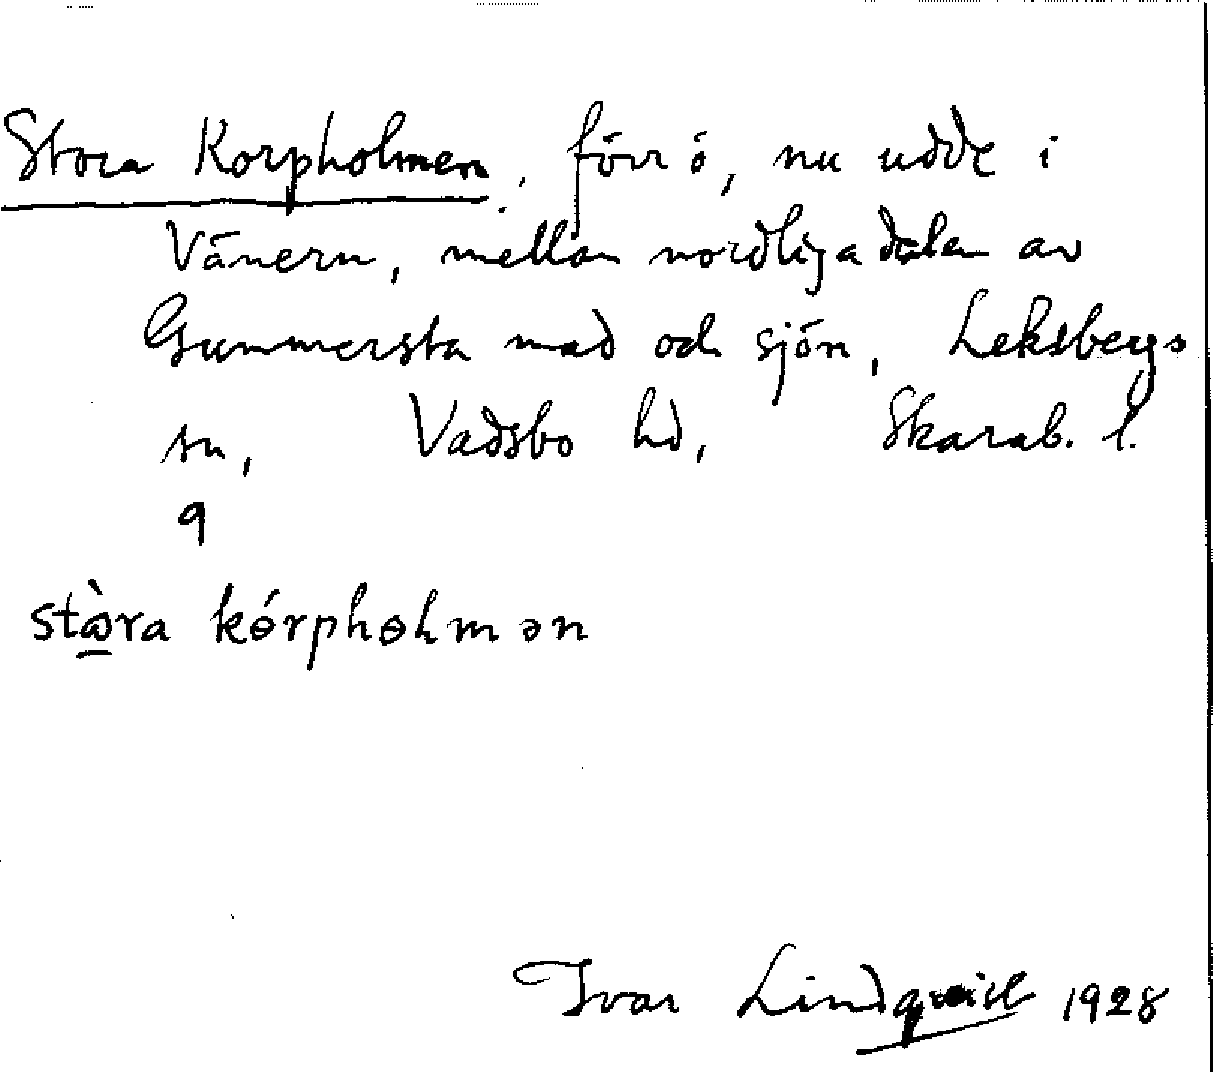 Stora Korpholmen, förr ö, nu udde i
Vänern, mellan nordliga delen av
Gummersta mad och sjön, Leksbergs
sn, Vadsbo hd, Skarab. l.
9
stὼra kɵ́rphɵlmən
Ivar Lindquist 1928